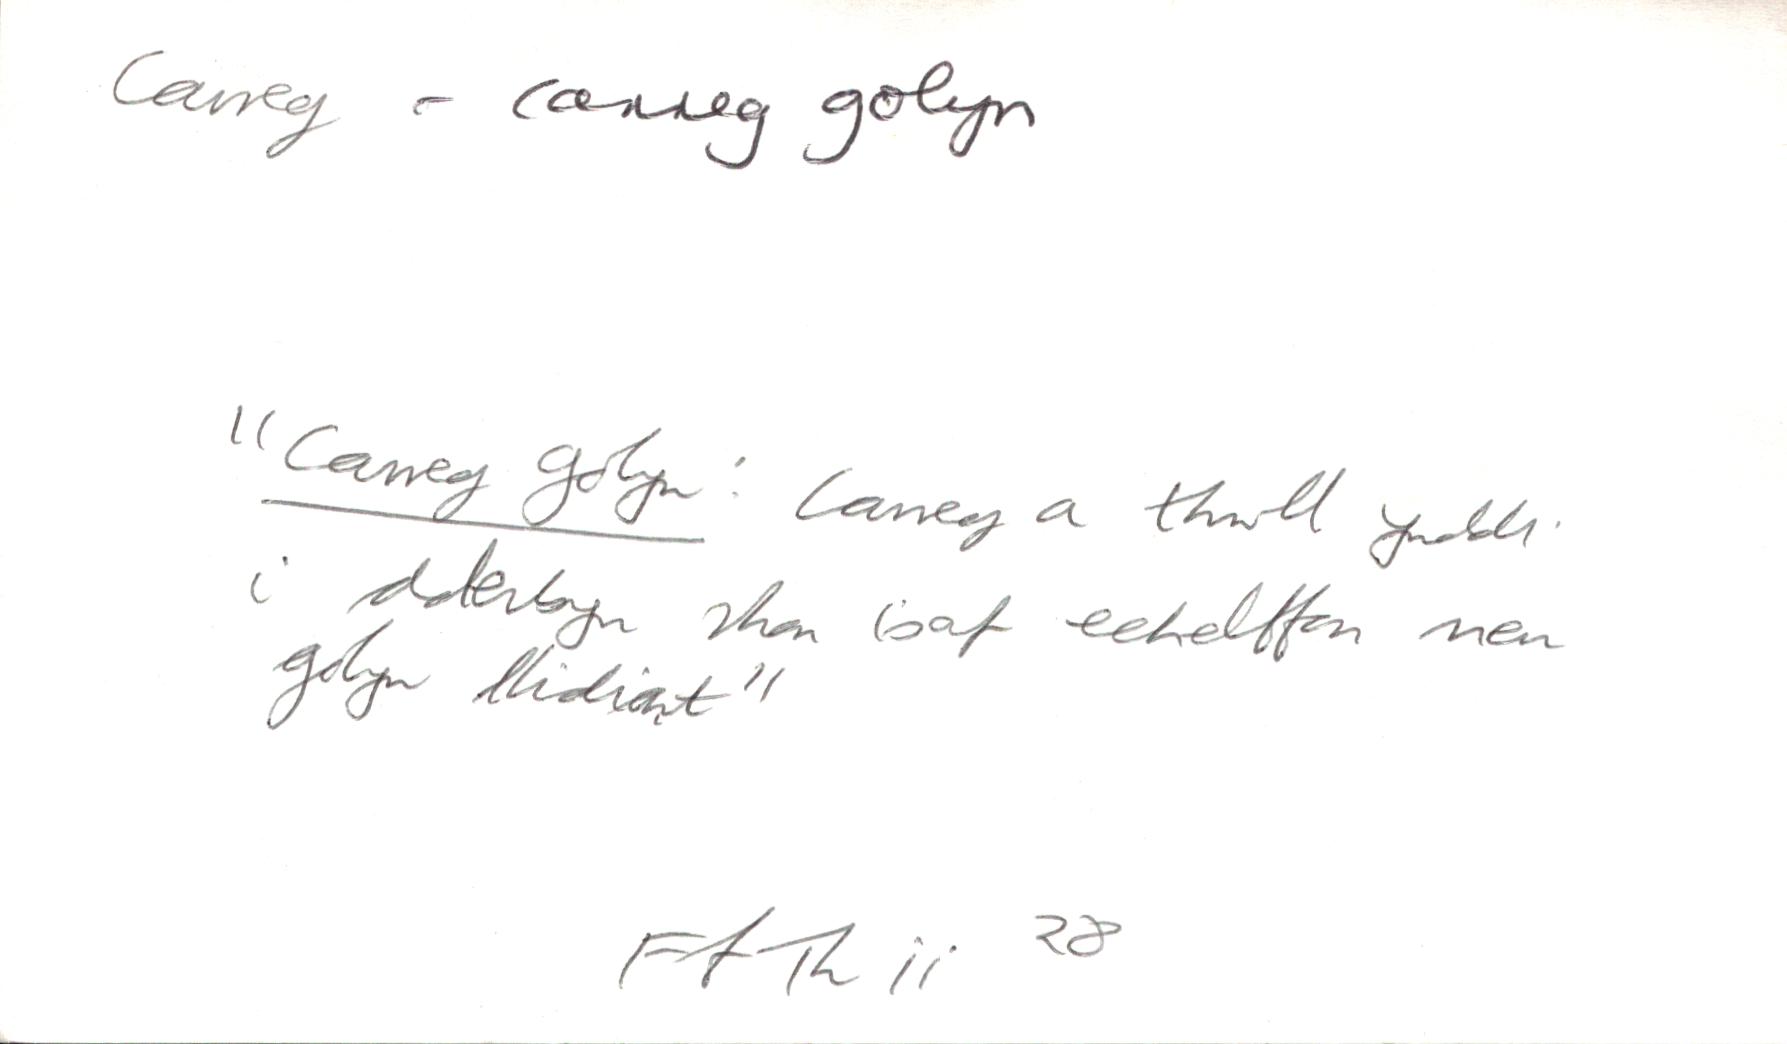 Carreg - carreg golyn
"Carreg golyn: Carreg a thwll ynddi
i dderbyn rhan isaf echelffon neu
golyn llidiart"
Ff Th ii 28